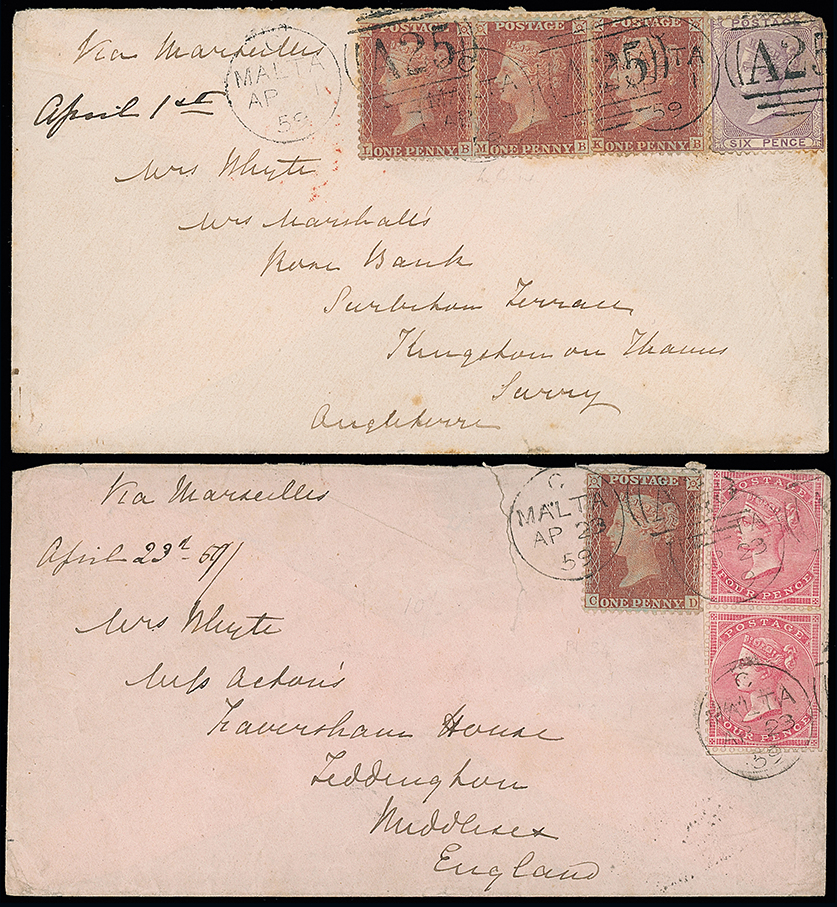 Via Marseilles
April 1st
MALTA
AP 1
59
A25
A25
A25
MALTA
59
POSTAGE
POSTAGE
POSTAGE
POSTAGE
L ONE PENNY B
M ONE PENNY B
K ONE PENNY B
SIX PENCE
Mrs Whyte
Mrs Marshall's
Rose Bank
Surbiton Terrace
Kingston on Thames
Surry
Angleterre
Via Marseilles
April 23d 59/
C
MALTA
AP 23
59
POSTAGE
C ONE PENNY D
POSTAGE
FOUR PENCE
POSTAGE
FOUR PENCE
C
MALTA
AP 23
59
Mrs Whyte
Miss Acton's
Faversham House
Teddington
Middlesex
England